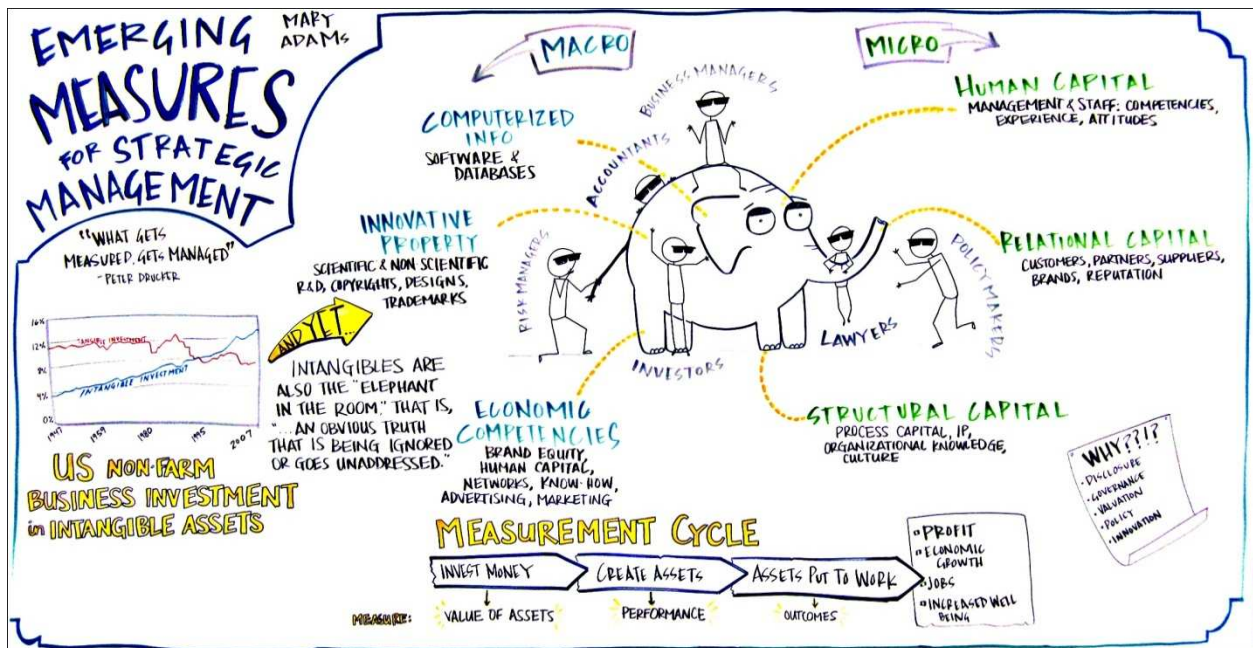 EMERGING
MEASURES
FOR STRATEGIC
MANAGEMENT
MARY
ADAMS
"WHAT GETS
MEASURED, GETS MANAGED"
- PETER DRUCKER
16%
12%
8%
4%
0%
TANGIBLE INVESTMENT
INTANGIBLE INVESTMENT
1947
1959
1980
1995
2007
US NON-FARM
BUSINESS INVESTMENT
in INTANGIBLE ASSETS
AND YET...
INTANGIBLES ARE
ALSO THE "ELEPHANT
IN THE ROOM." THAT IS,
"...AN OBVIOUS TRUTH
THAT IS BEING IGNORED
OR GOES UNADDRESSED."
MACRO
COMPUTERIZED
INFO
SOFTWARE &
DATABASES
INNOVATIVE
PROPERTY
SCIENTIFIC & NON SCIENTIFIC
R&D, COPYRIGHTS, DESIGNS,
TRADEMARKS
ECONOMIC
COMPETENCIES
BRAND EQUITY,
HUMAN CAPITAL,
NETWORKS, KNOW-HOW,
ADVERTISING, MARKETING
RISK MANAGERS
ACCOUNTANTS
BUSINESS MANAGERS
INVESTORS
LAWYERS
POLICY MAKERS
MICRO
HUMAN CAPITAL
MANAGEMENT & STAFF: COMPETENCIES,
EXPERIENCE, ATTITUDES
RELATIONAL CAPITAL
CUSTOMERS, PARTNERS, SUPPLIERS,
BRANDS, REPUTATION
STRUCTURAL CAPITAL
PROCESS CAPITAL, IP,
ORGANIZATIONAL KNOWLEDGE,
CULTURE
WHY???!?
• DISCLOSURE
• GOVERNANCE
• VALUATION
• POLICY
• INNOVATION
MEASUREMENT CYCLE
INVEST MONEY
CREATE ASSETS
ASSETS PUT TO WORK
• PROFIT
• ECONOMIC
GROWTH
• JOBS
• INCREASED WELL
BEING
MEASURE:
VALUE OF ASSETS
PERFORMANCE
OUTCOMES